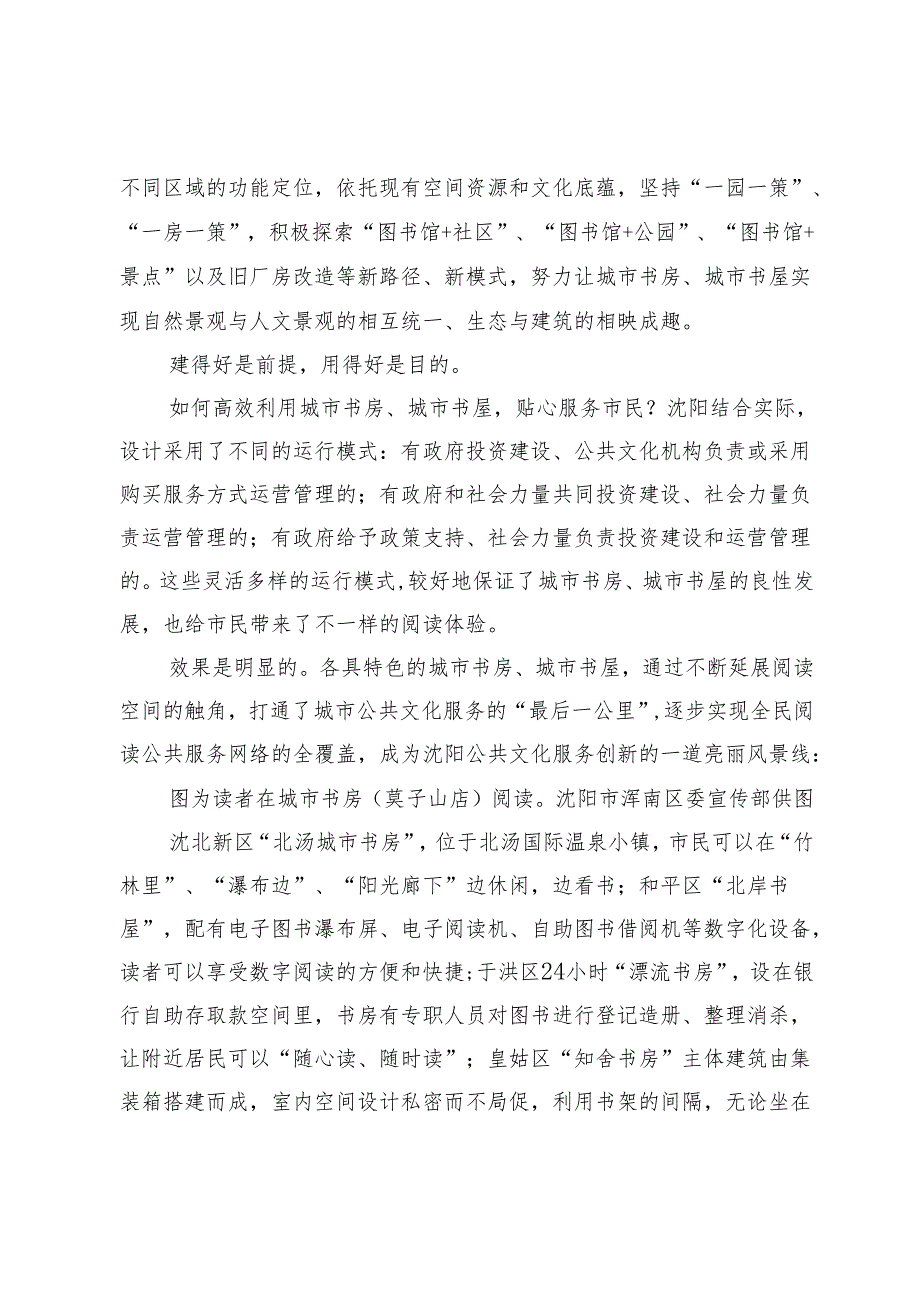 不同区域的功能定位，依托现有空间资源和文化底蕴，坚持“一园一策”、
“一房一策”，积极探索“图书馆+社区”、“图书馆+公园”、“图书馆+
景点”以及旧厂房改造等新路径、新模式，努力让城市书房、城市书屋实
现自然景观与人文景观的相互统一、生态与建筑的相映成趣。
建得好是前提，用得好是目的。
如何高效利用城市书房、城市书屋，贴心服务市民？沈阳结合实际，
设计采用了不同的运行模式：有政府投资建设、公共文化机构负责或采用
购买服务方式运营管理的；有政府和社会力量共同投资建设、社会力量负
责运营管理的；有政府给予政策支持、社会力量负责投资建设和运营管理
的。这些灵活多样的运行模式,较好地保证了城市书房、城市书屋的良性发
展，也给市民带来了不一样的阅读体验。
效果是明显的。各具特色的城市书房、城市书屋，通过不断延展阅读
空间的触角，打通了城市公共文化服务的“最后一公里”,逐步实现全民阅
读公共服务网络的全覆盖，成为沈阳公共文化服务创新的一道亮丽风景线：
图为读者在城市书房（莫子山店）阅读。沈阳市浑南区委宣传部供图
沈北新区“北汤城市书房”，位于北汤国际温泉小镇，市民可以在“竹
林里”、“瀑布边”、“阳光廊下”边休闲，边看书；和平区“北岸书
屋”，配有电子图书瀑布屏、电子阅读机、自助图书借阅机等数字化设备，
读者可以享受数字阅读的方便和快捷;于洪区24小时“漂流书房”，设在银
行自助存取款空间里，书房有专职人员对图书进行登记造册、整理消杀，
让附近居民可以“随心读、随时读”；皇姑区“知舍书房”主体建筑由集
装箱搭建而成，室内空间设计私密而不局促，利用书架的间隔，无论坐在